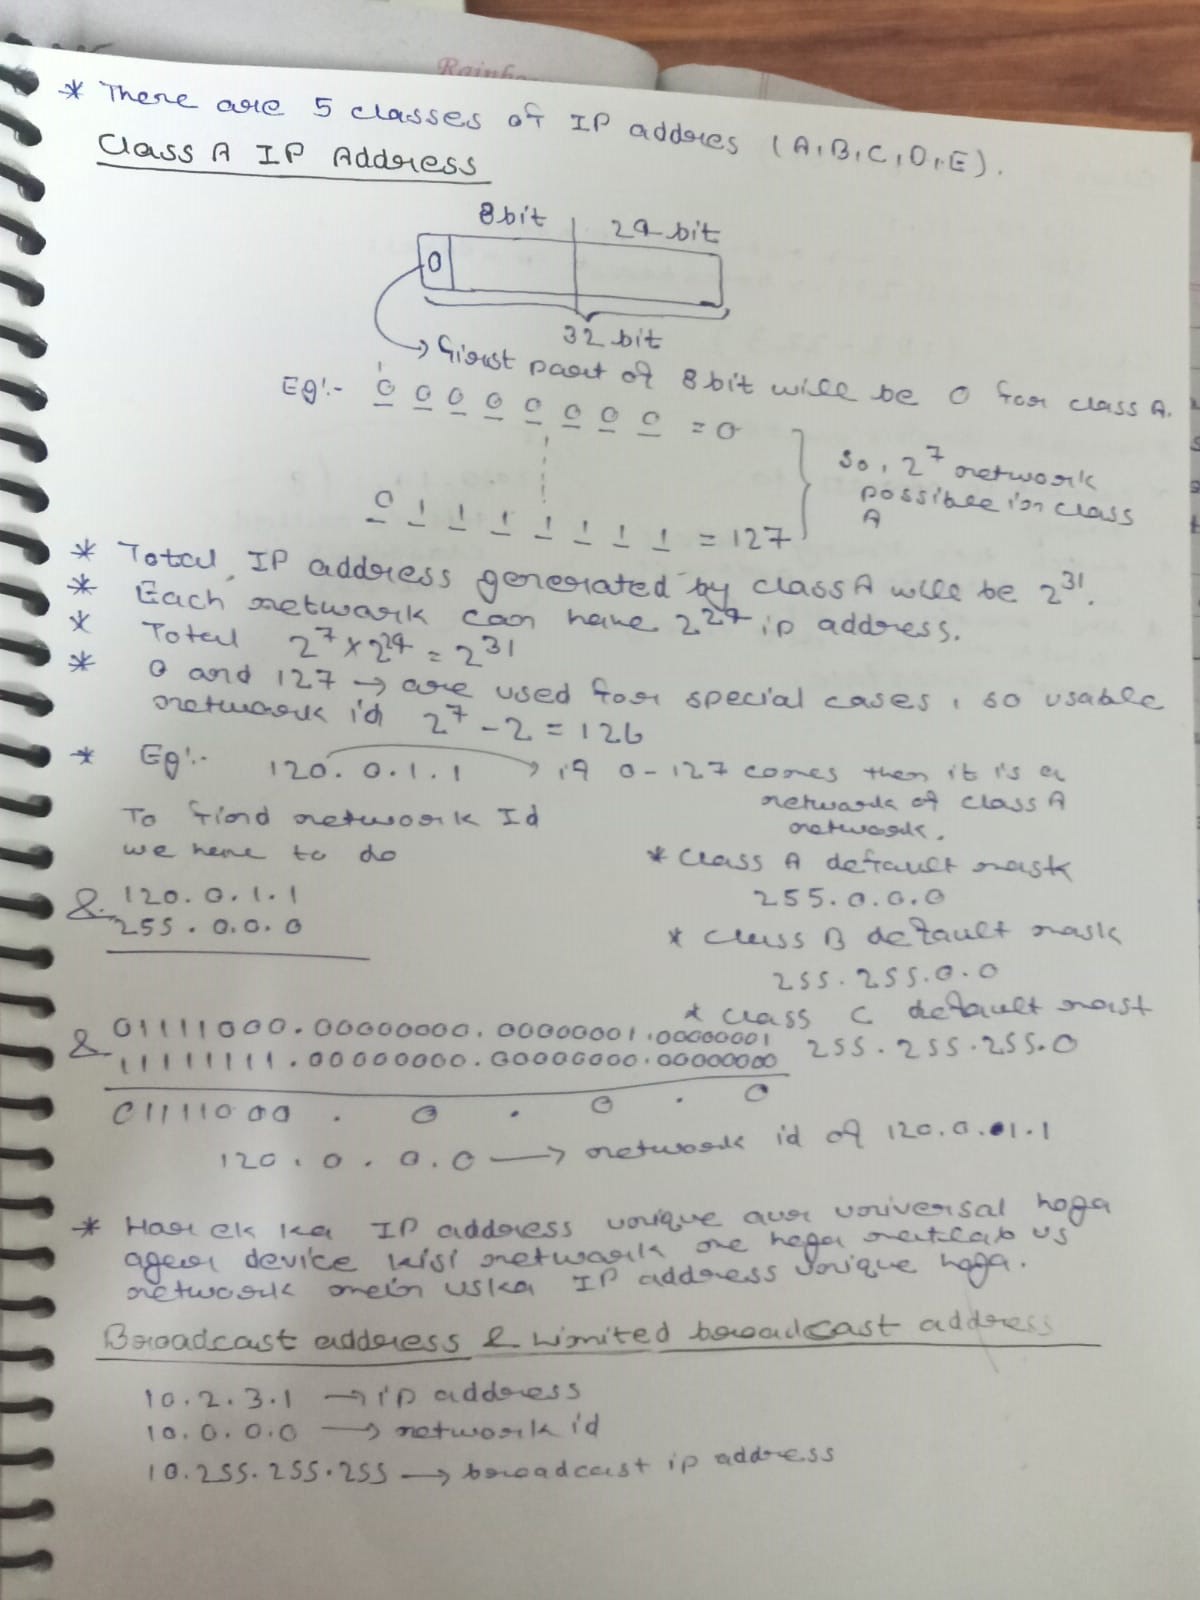 Rainbo
* There are 5 classes of IP addres (A,B,C,D,E).
Class A IP Address
8bit 24 bit
0
32 bit
→ first part of 8bit will be 0 for class A.
Eg:- 0 0 0 0 0 0 0 0 = 0
so, 2^7 network
possible in class
A
0 1 1 1 1 1 1 1 = 127
* Total IP address generated by class A will be 2^31.
* Each network can have 2^24 ip address.
* Total 2^7 x 2^24 = 2^31
* 0 and 127 → are used for special cases, so usable
network id 2^7 - 2 = 126
* Eg:- 120.0.1.1 → if 0-127 comes then it is a
network of class A
network.
To find network Id
we have to do
& 120.0.1.1
255.0.0.0
* class A default mask
255.0.0.0
* class B default mask
255.255.0.0
* class C default mast
255.255.255.0
& 01111000.00000000.00000001.00000001
11111111.00000000.00000000.00000000
01111000 . 0 . 0 . 0
120.0.0.0 → network id of 120.0.1.1
* Har ek ka IP address unique aur universal hoga
agar device kisi network me hoga matlab us
network mein uska IP address unique hoga.
Broadcast address & Limited broadcast address
10.2.3.1 → ip address
10.0.0.0 → network id
10.255.255.255 → broadcast ip address